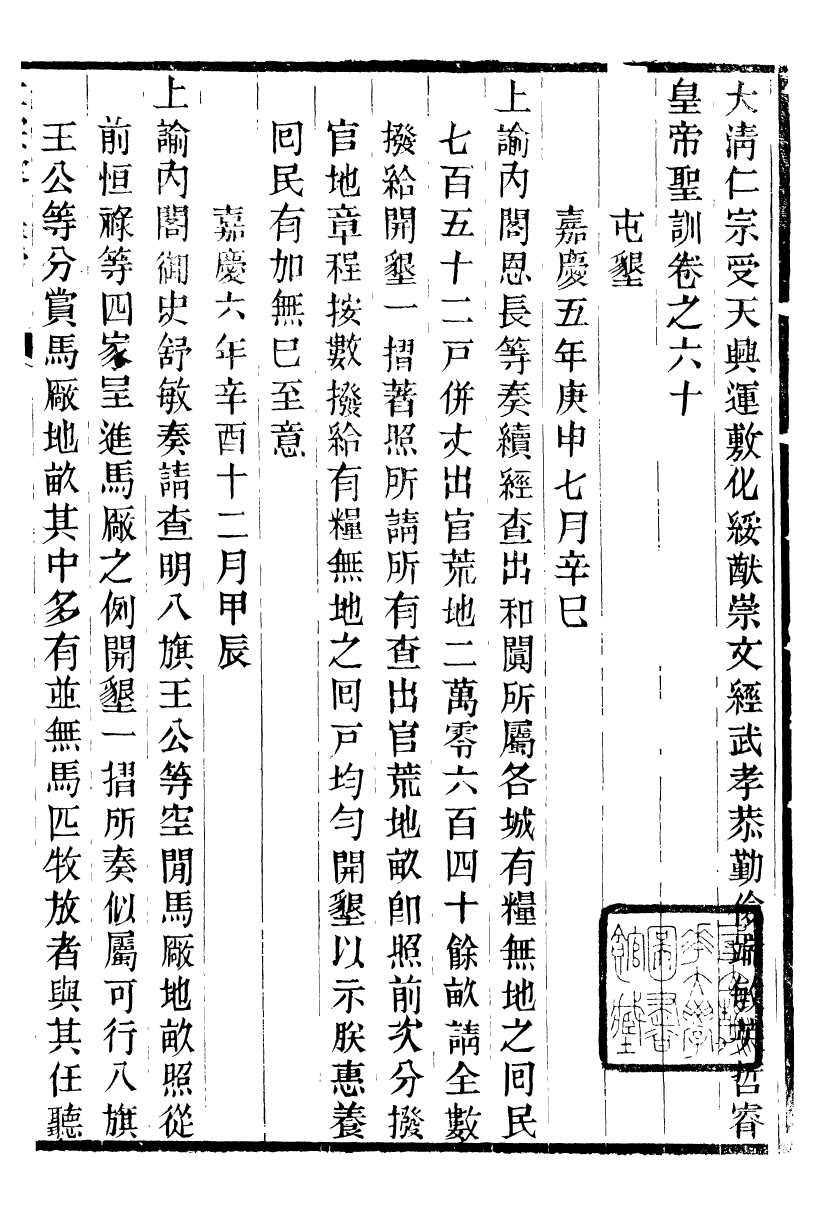 大淸仁宗受天興運敷化綏猷崇文經武孝恭勤儉端敏英哲睿
皇帝聖訓卷之六十
屯墾
嘉慶五年庚申七月辛巳
上諭內閣恩長等奏續經查出和闐所屬各城有糧無地之回民
七百五十二戸併丈出官荒地二萬零六百四十餘畝請全數
撥給開墾一摺著照所請所有查出官荒地畝卽照前次分撥
官地章程按數撥給有糧無地之回戸均勻開墾以示朕惠養
回民有加無已至意
嘉慶六年辛酉十二月甲辰
上諭內閣御史舒敏奏請查明八旗王公等空閒馬廠地畝照從
前恒祿等四家呈進馬廠之例開墾一摺所奏似屬可行八旗
王公等分賞馬廠地畝其中多有並無馬匹牧放者與其任聽